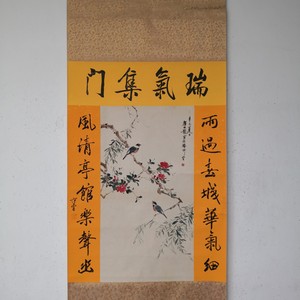 瑞氣集門
雨過春城華氣細
風清亭館樂聲幽